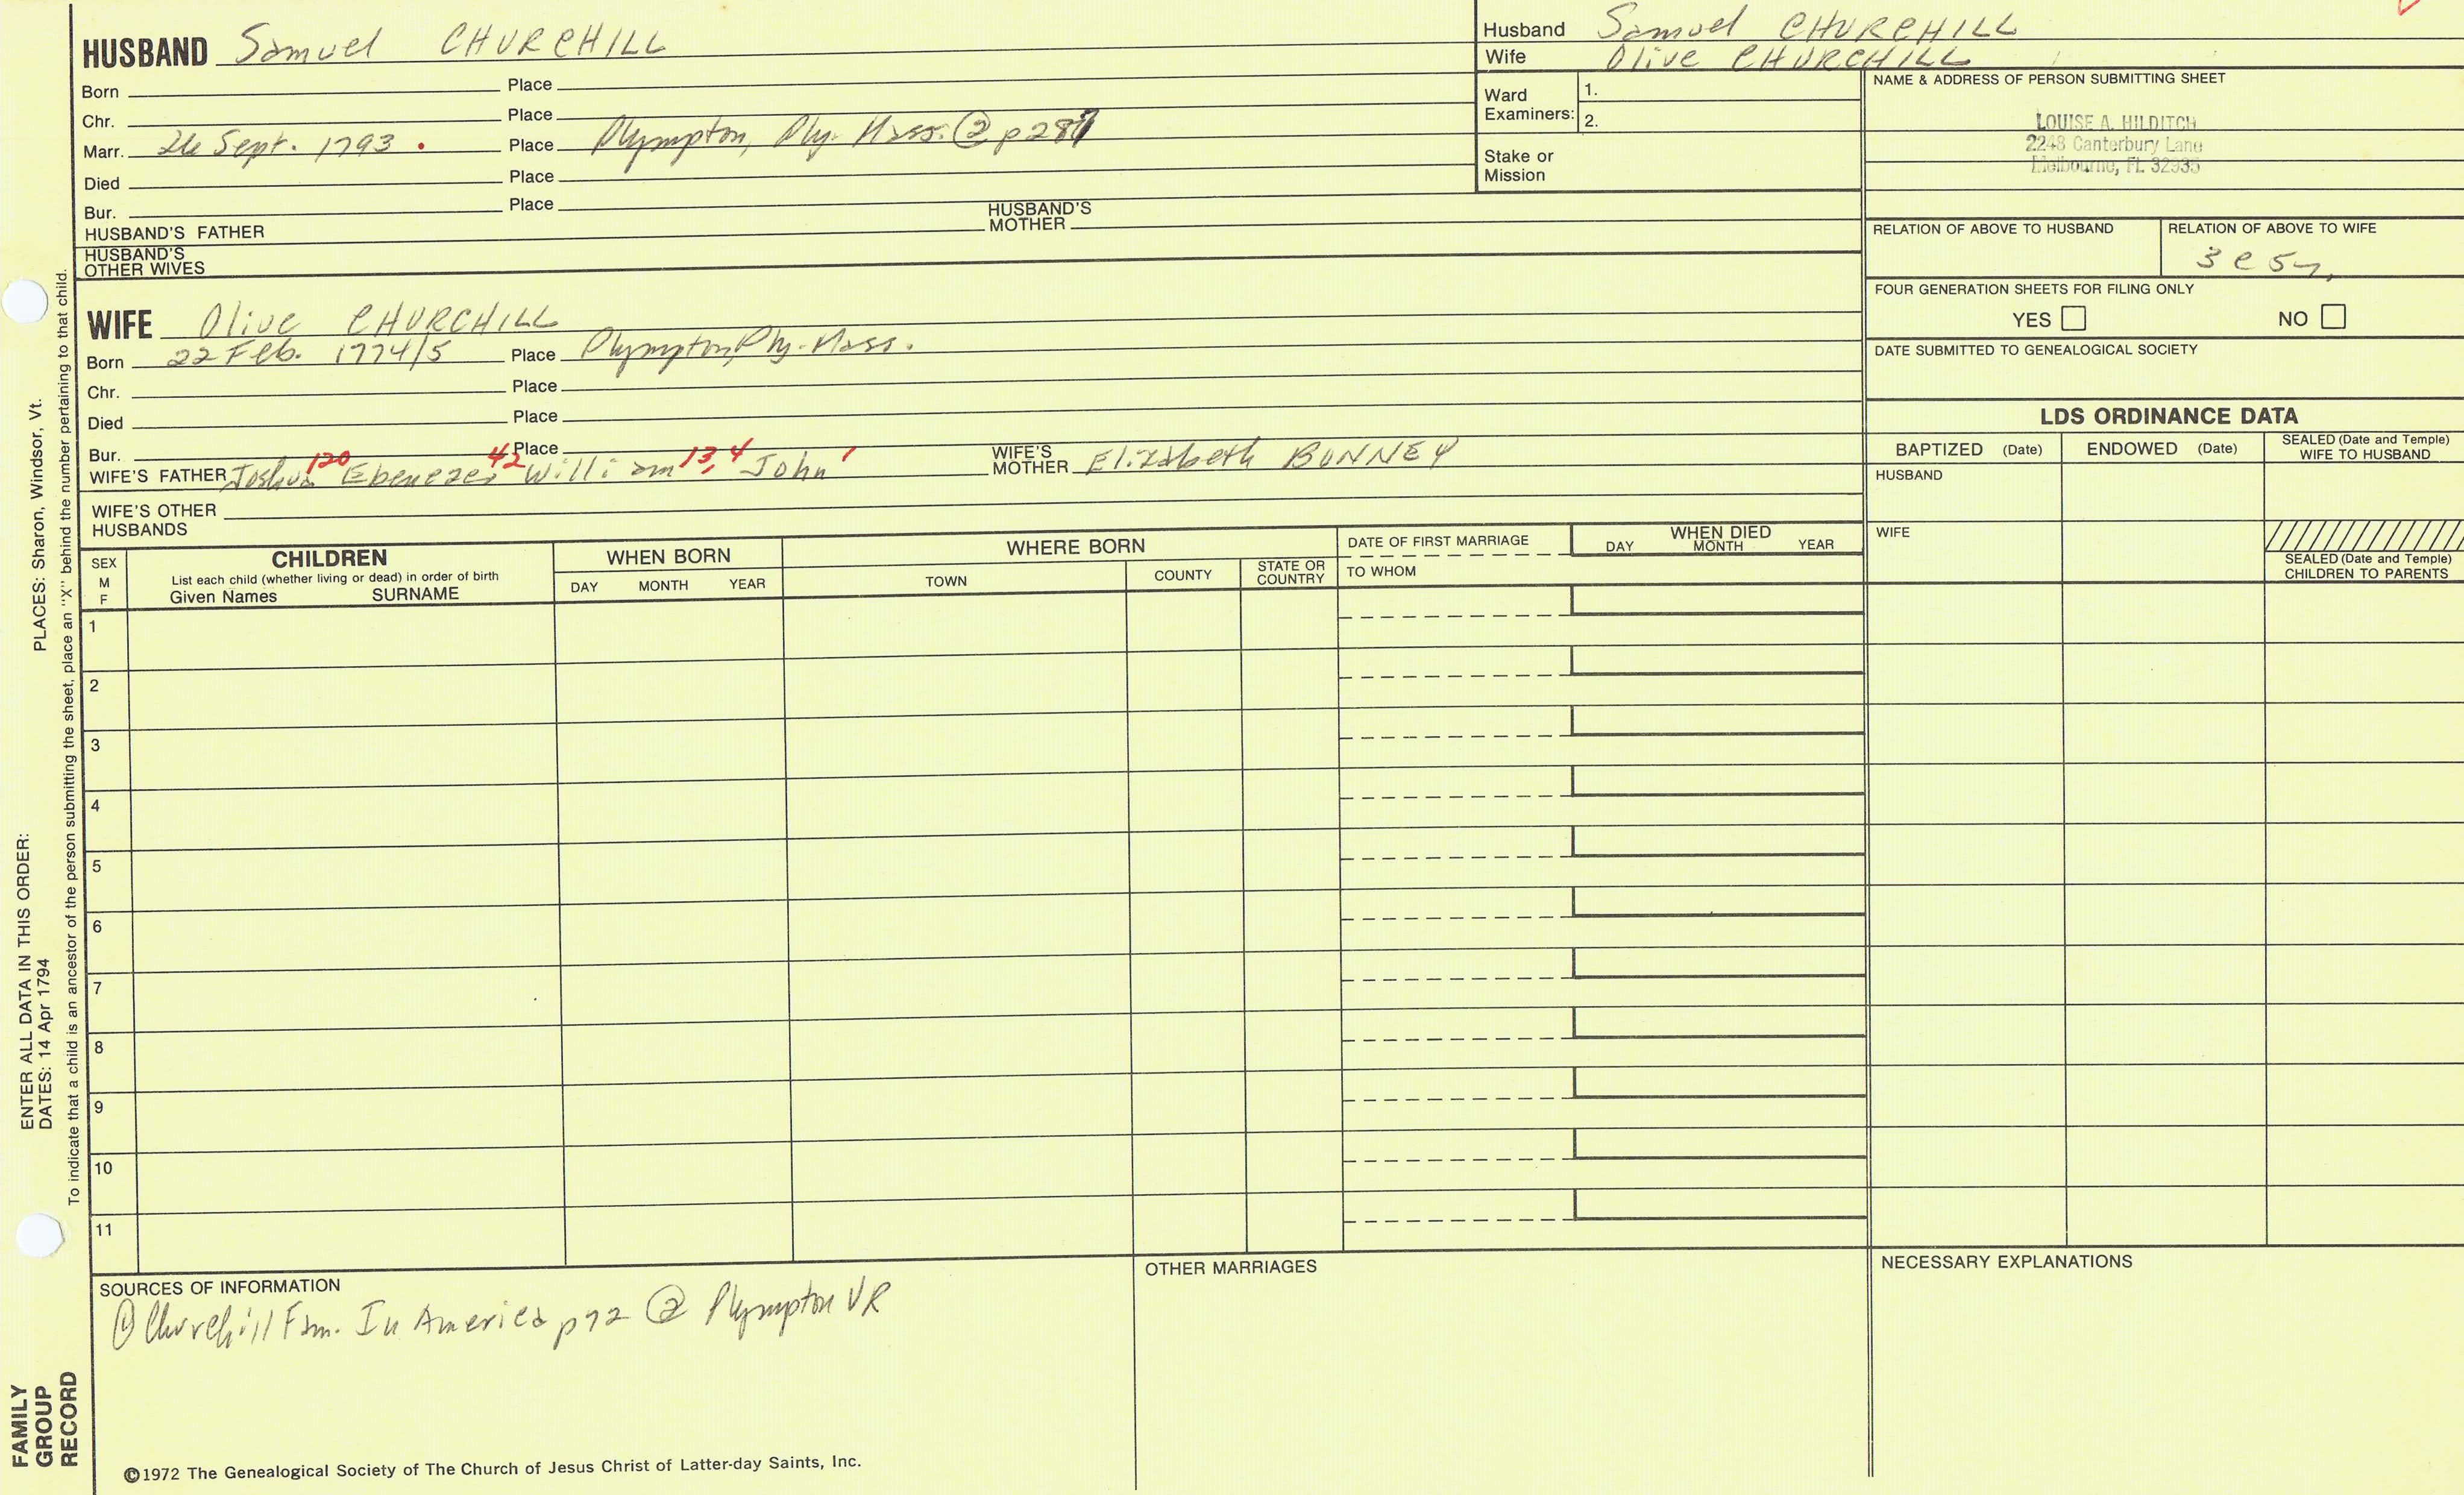 HUSBAND Samuel CHURCHILL
Born Place
Chr. Place
Marr. 26 Sept. 1793 . Place Plympton, Ply. Mass. ② p 287
Died Place
Bur. Place
HUSBAND'S FATHER HUSBAND'S MOTHER
HUSBAND'S OTHER WIVES
WIFE Olive CHURCHILL
Born 22 Feb. 1774/5 Place Plympton, Ply. Mass.
Chr. Place
Died Place
Bur. Place
WIFE'S FATHER Joshua 120 Ebenezer 42 William 13, 4 John 1 WIFE'S MOTHER Elizabeth BONNEY
WIFE'S OTHER HUSBANDS
Husband Samuel CHURCHILL
Wife Olive CHURCHILL
Ward Examiners: 1.
2.
Stake or Mission
NAME & ADDRESS OF PERSON SUBMITTING SHEET
LOUISE A. HILDITCH
2248 Canterbury Lane
Melbourne, FL 32935
RELATION OF ABOVE TO HUSBAND RELATION OF ABOVE TO WIFE
3 c 5
FOUR GENERATION SHEETS FOR FILING ONLY
YES NO
DATE SUBMITTED TO GENEALOGICAL SOCIETY
LDS ORDINANCE DATA
BAPTIZED (Date) ENDOWED (Date) SEALED (Date and Temple) WIFE TO HUSBAND
HUSBAND
WIFE
SEALED (Date and Temple) CHILDREN TO PARENTS
SEX M F
CHILDREN
List each child (whether living or dead) in order of birth
Given Names SURNAME
WHEN BORN
DAY MONTH YEAR
WHERE BORN
TOWN COUNTY STATE OR COUNTRY
DATE OF FIRST MARRIAGE
TO WHOM
WHEN DIED
DAY MONTH YEAR
1
2
3
4
5
6
7
8
9
10
11
SOURCES OF INFORMATION
① Churchill Fam. In America p 72 ② Plympton VR
OTHER MARRIAGES
NECESSARY EXPLANATIONS
©1972 The Genealogical Society of The Church of Jesus Christ of Latter-day Saints, Inc.
FAMILY GROUP RECORD
ENTER ALL DATA IN THIS ORDER:
DATES: 14 Apr 1794
PLACES: Sharon, Windsor, Vt.
To indicate that a child is an ancestor of the person submitting the sheet, place an "X" behind the number pertaining to that child.